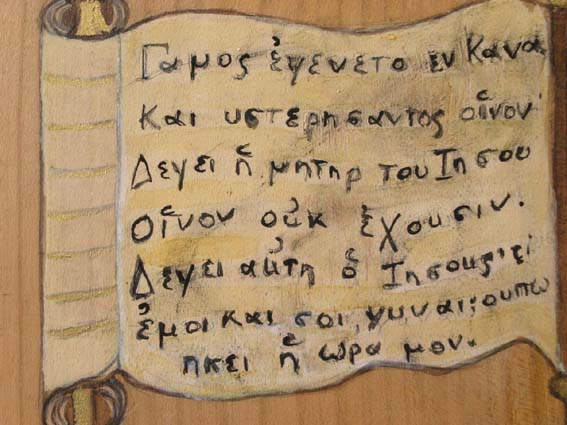 Γαμος ἐγενετο εν Κανα
Και υστερησαντος οἴνου
Δεγει ἥ μητηρ του Ιησου
Οἶνον οὐκ ἐχουσιν.
Δεγει αὐτη ὅ Ιησους· τί
ἐμοι και σοι, γυναι; ουπω
ηκει ἥ ωρα μου.